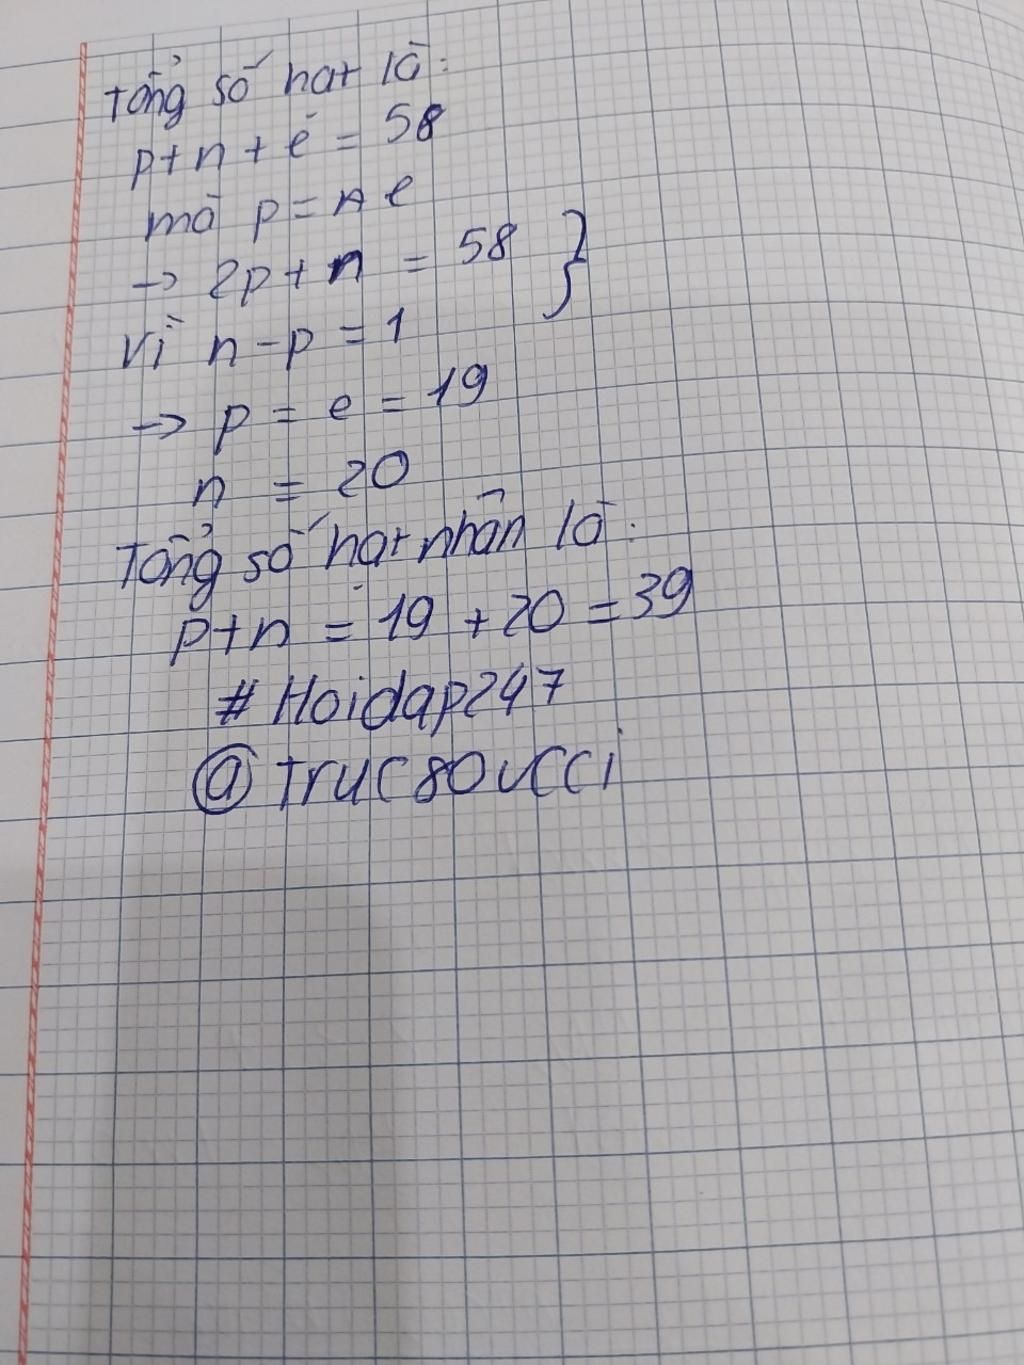 Tổng số hạt là:
p+n+e = 58
mà p = n e
→ 2p+n = 58 }
Vì n-p = 1
→ p = e = 19
n = 20
Tổng số hạt nhân là:
p+n = 19 + 20 = 39
# Hoidap247
@ Truc80ucci